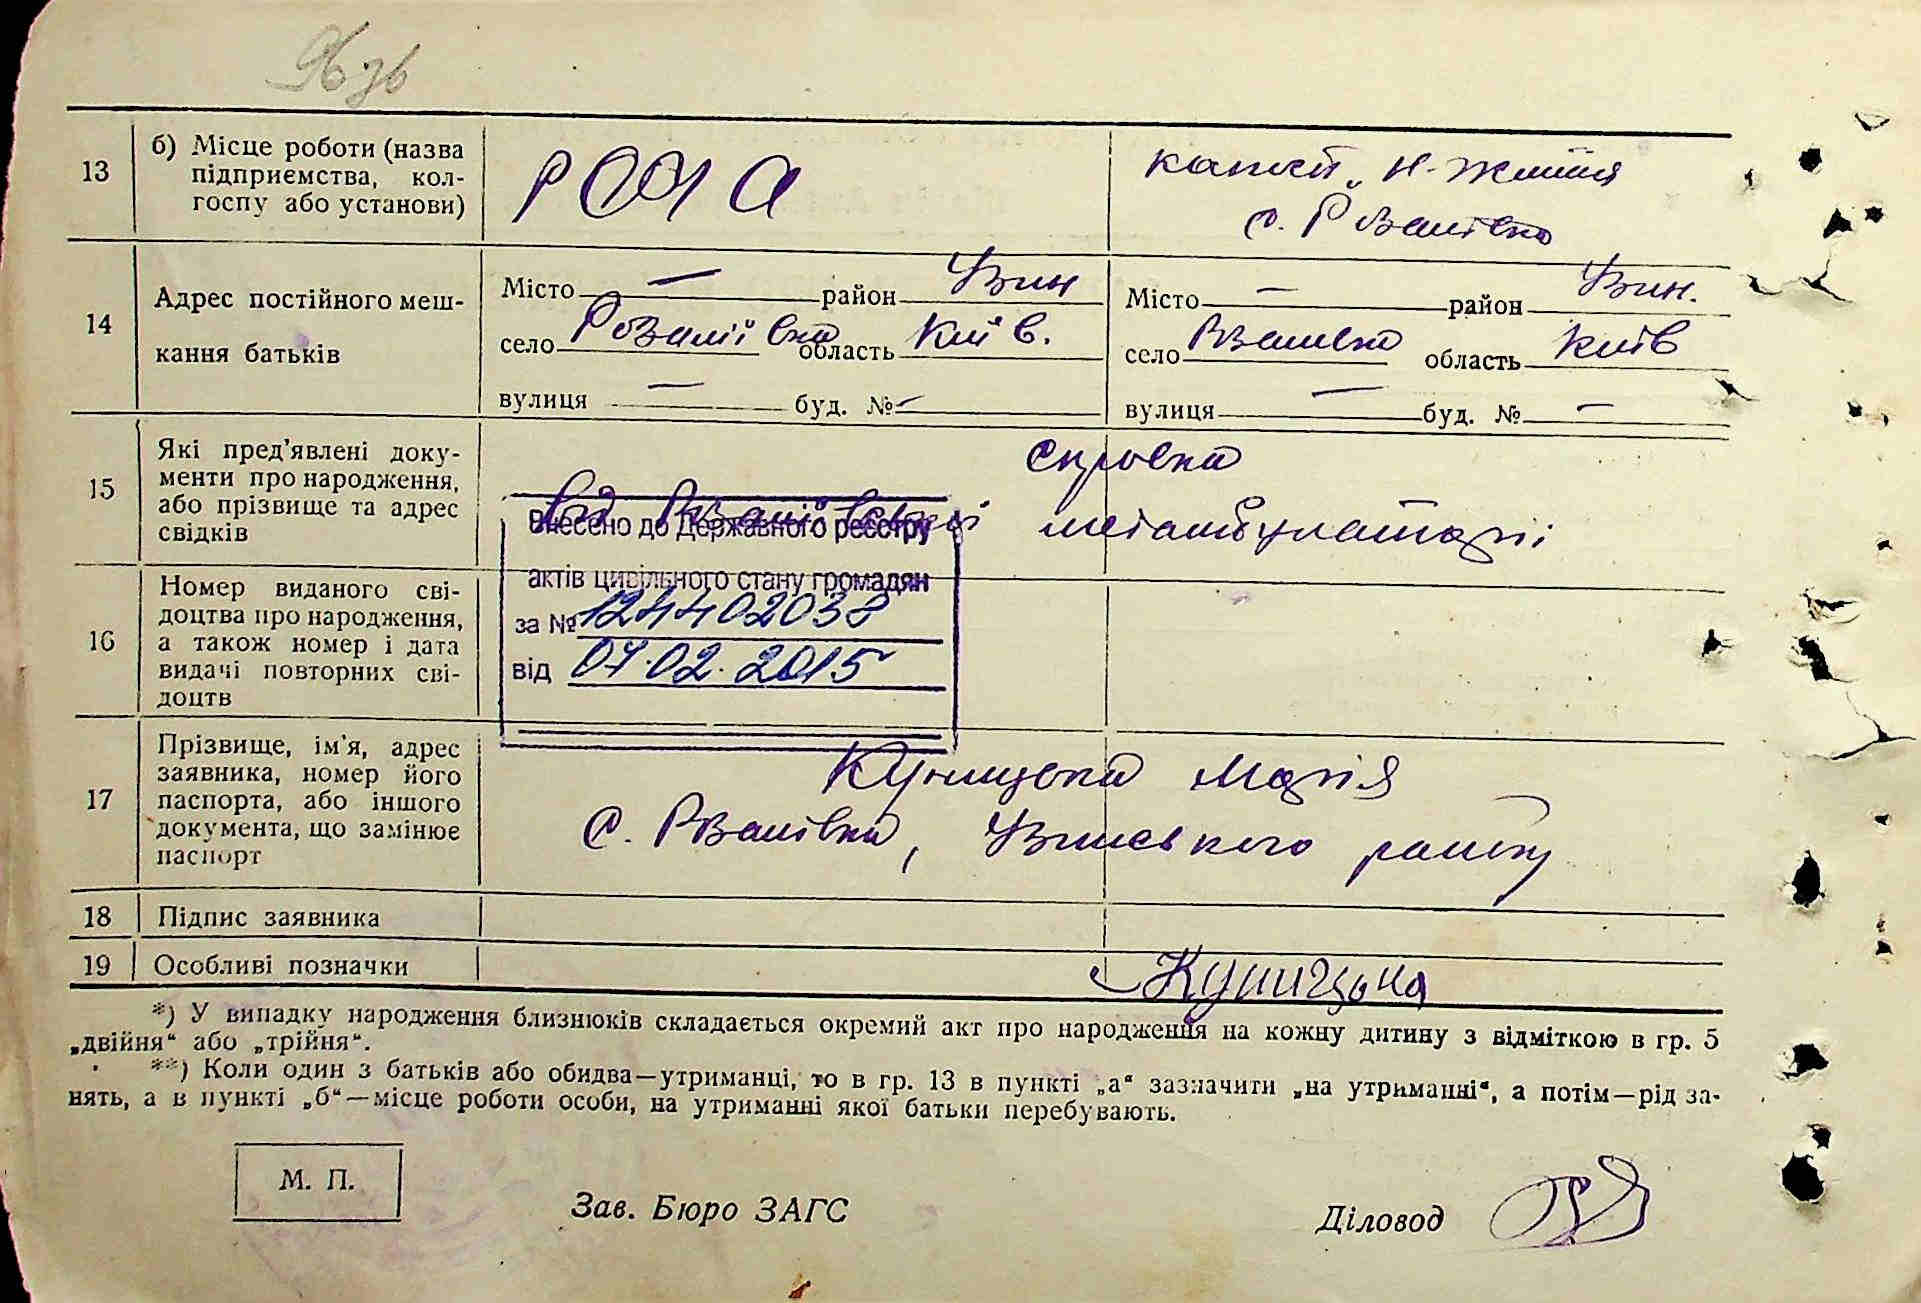 13
б) Місце роботи (назва
підприємства, кол-
госпу або установи)
РОЧА
колгосп „Н-Життя
с. Розаліївка
14
Адрес постійного меш-
кання батьків
Місто — район Узин
село Розаліївка область Київ.
вулиця — буд. № —
Місто — район Узин.
село Розалівка область Київ
вулиця — буд. № —
15
Які пред'явлені доку-
менти про народження,
або прізвище та адрес
свідків
справка
від Розаліївської медамбулаторії
Внесено до Державного реєстру
актів цивільного стану громадян
за № 124402038
від 07.02.2015
16
Номер виданого сві-
доцтва про народження,
а також номер і дата
видачі повторних сві-
доцтв
17
Прізвище, ім'я, адрес
заявника, номер його
паспорта, або іншого
документа, що замінює
паспорт
Куницька Марія
с. Розалівка, Узинського району
18
Підпис заявника
19
Особливі позначки
Куницька
*) У випадку народження близнюків складається окремий акт про народження на кожну дитину з відміткою в гр. 5
„двійня“ або „трійня“.
**) Коли один з батьків або обидва—утриманці, то в гр. 13 в пункті „а“ зазначити „на утриманні“, а потім—рід за-
нять, а в пункті „б“—місце роботи особи, на утриманні якої батьки перебувають.
М. П.
Зав. Бюро ЗАГС
Діловод